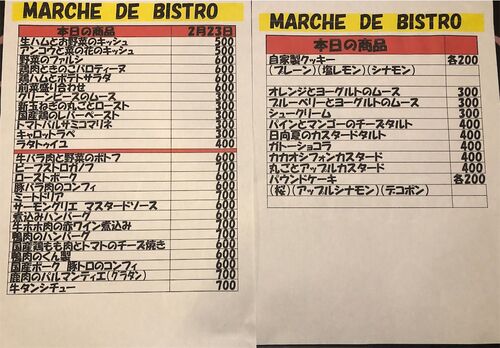 MARCHE DE BISTRO
本日の商品 2月23日
生ハムとお野菜のキッシュ 500
アンコウと菜の花のキッシュ 500
野菜のファルシ 600
鶏肉ときのこバロティーヌ 600
鶏ハムとポテトサラダ 600
前菜盛り合わせ 600
グリーンピースのムース 300
新玉ねぎの丸ごとロースト 300
国産鶏のレバーペースト 300
トマトバルサミコマリネ 300
キャロットラペ 300
ラタトゥイユ 400
牛バラ肉と野菜のポトフ 600
ビーフストロガノフ 600
ローストポーク 600
豚バラ肉のコンフィ 600
ミートドリア 600
サーモングリエ マスタードソース 600
煮込みハンバーグ 600
牛ホホ肉の赤ワイン煮込み 600
鴨肉のハンバーグ 600
国産鶏もも肉とトマトのチーズ焼き 600
鴨肉のくん製 600
国産ポーク 豚トロのコンフィ 600
鹿肉のパルマンティエ(グラタン) 700
牛タンシチュー 700
MARCHE DE BISTRO
本日の商品
自家製クッキー 各200
(プレーン)(塩レモン)(シナモン)
オレンジとヨーグルトのムース 300
ブルーベリーとヨーグルトのムース 300
シュークリーム 300
パインとマンゴーのチーズタルト 400
日向夏のカスタードタルト 400
ガトーショコラ 400
カカオシフォンカスタード 400
丸ごとアップルカスタード 400
パウンドケーキ 各200
(桜)(アップルシナモン)(デコポン)